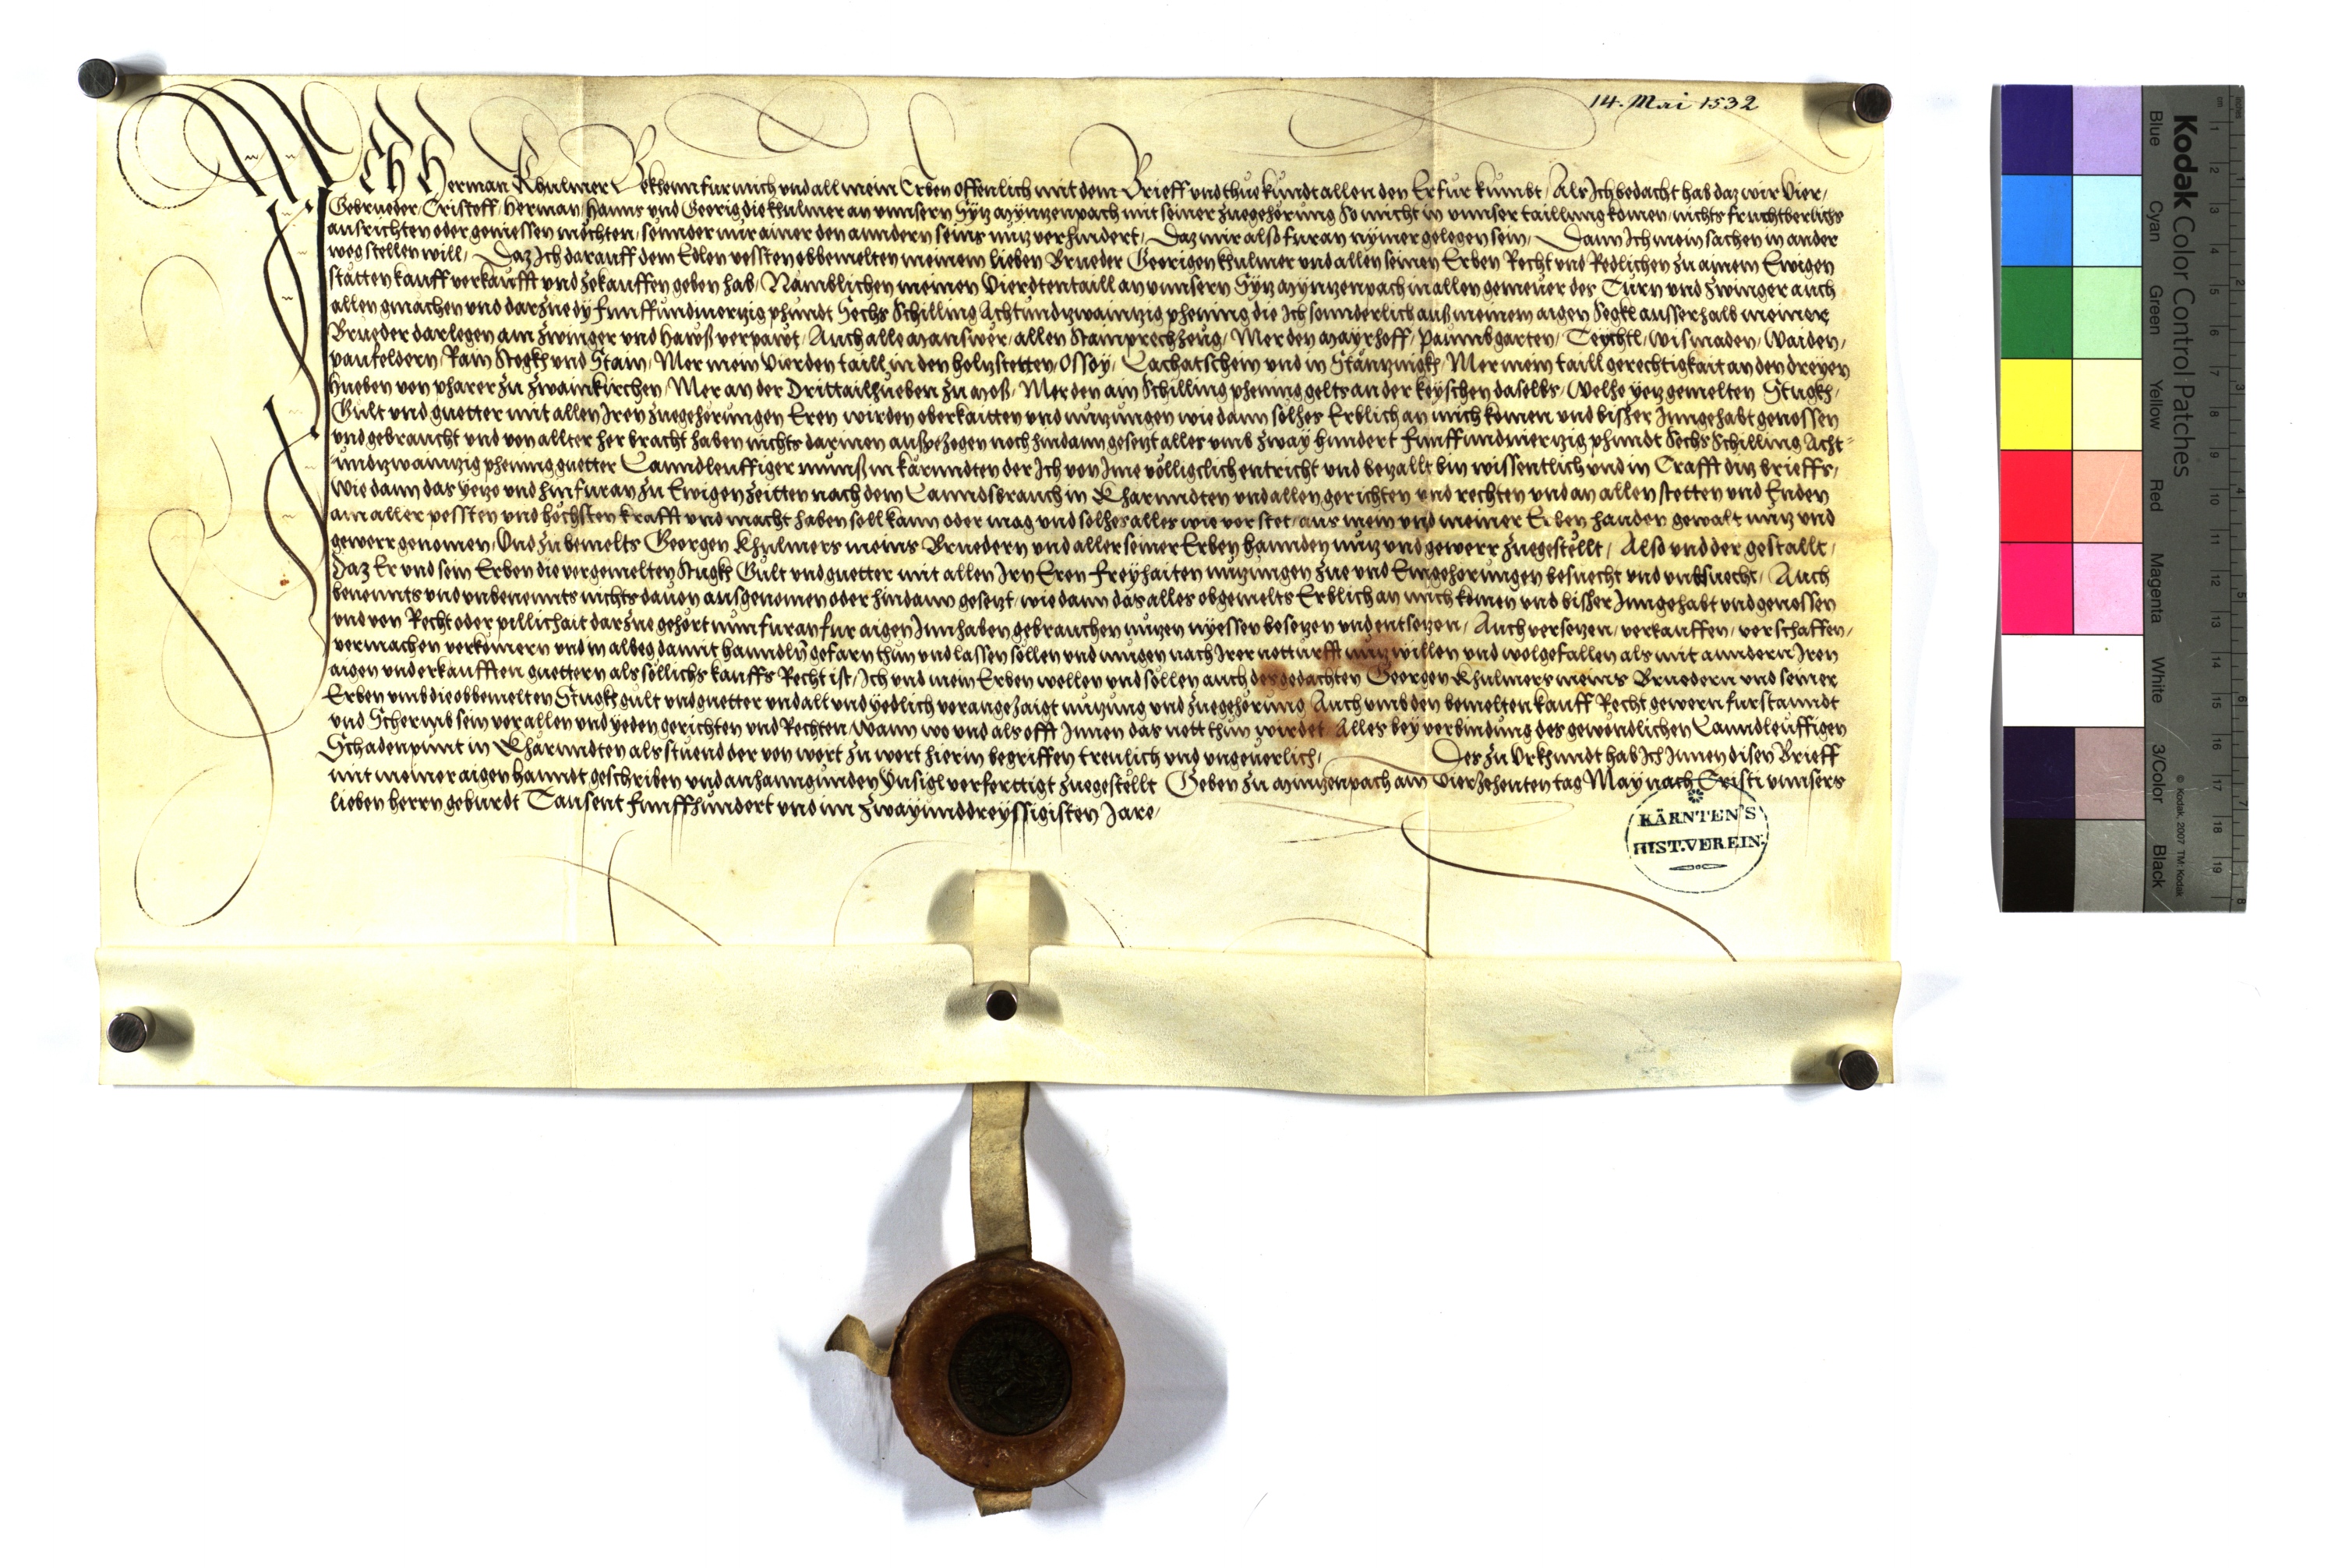 14. Mai 1532
Ich Herman Khulmer Bekhenn fur mich und all mein Erben offenlich mit dem Brieff und thue kundt allen den Er fur kumbt / Als Ich bedacht hab daz wir Vier /
Gebrueder / Cristoff / Herman / Hanns und Georig die Khulmer an unnserm Sytz Myntzenpach mit seiner zuegehorung So nicht in unnser taillung komen / nichts fruchtberlichs
ausrichten oder geniessen mochten / sonnder nur ainer den anndern seins nutz verhindert / Daz mir also furan nymer gelegen sein / Dann Ich mein sachen in ander
weg stellen will / Daz Ich darauff dem Edlen vessten obbemelten meinem lieben Brueder Georigen Khulmer und allen seinen Erben Recht und Redlichen zu ainem Ewigen
statten kauff verkaufft und zekauffen geben hab / Namblichen meinen Vierdten taill an unnserm Sytz Myntzenpach in allen gemeuer des Turn und zwinger auch
allen gmachen und darzue dy funffundviertzig phundt Sechs Schilling Achtundzwaintzig phening die Ich sonnderlich auß meinem aigen Segkl ausserhalb meiner
Brueder darlegen am zwinger und Hawß verpawt / Auch alle Manswer / allen Stamprechzeug / Mer den Mayrhoff / Paumbgarten / Teychtl / Wismaden / Waiden /
paufeldern / Rain Stogkh und Stain / Mer mein Vierden taill in den holtzstetten / Ossoy / Lachatschein und in Stanntznigkh / Mer mein taill gerechtigkait an den dreyen
hueben von pharer zu zwainkirchen / Mer an der Drittailhueben zu Moß / Mer den ain Schilling phening gelts an der Keyschen daselbs / Welhe yetz gemelten Stugkh /
Gult und guetter mit allen Iren zuegehorungen Eren wirden oberkaitten und nutzungen wie dann solhes Erblich an mich komen und bisher Inngehabt genossen
und gebraucht und von allter her bracht haben nichts darinen außgezogen noch hindann gesetzt alles umb zway hundert funffundviertzig phundt Sechs Schilling Acht-
undzwaintzig phening guetter Lanndleuffiger munß in karnndten der Ich von Ime volligclich entricht und betzallt bin wissentlich und in Crafft ditz brieffs /
Wie dann das yetzo und hinfuran zu Ewigen zeitten nach dem Lanndsbrauch in Kharnndten und allen gerichten und rechten und an allen stetten und Enden
am aller pessten und hochsten krafft und macht haben soll kann oder mag und solhes alles wie vor stet / aus mein und meiner Erben hannden gewalt nutz und
gewerr genomen / Und zu bemelts Georgen Khulmers meins Bruedern und aller seiner Erben hannden nutz und gewerr zuegestellt / Also und der gestallt /
Daz Er und sein Erben die vorgemelten Stugkh Gult und guetter mit allen Irn Eren freyhaiten nutzungen zue und Eingehorungen besuecht und unbsuecht / Auch
benennts und unbenennts nichts davon ausgenomen oder hindann gesetzt / wie dann das alles obgemelts Erblich an mich komen und bisher Inngehabt und genossen
und von Recht oder pillichait darzue gehort nun furan fur aigen Innhaben gebrauchen nutzen nyessen besetzen und entsetzen / Auch versetzen / verkauffen / verschaffen /
vermachen verkomern und in albeg damit hanndln gefarn thun und lassen sollen und mugen nach Irer notturfft nutz willen und wolgefallen als mit anndern Iren
aigen und erkaufften guettern als sollichs kauffs Recht ist / Ich und mein Erben wellen und sollen auch des gedachten Georgen Khulmers meins Bruedern und seiner
Erben umb die obbemelten Stugkh gult und guetter und all und yedlich vorangezaigt nutzung und zuegehorung Auch umb den bemelten kauff Recht gewern furstanndt
und Schermb sein vor allen und yeden gerichten und Rechten Wann wo und als offt Innen das nott thun wirdet Alles bey verbindung des gewondlichen Lanndleuffigen
Schadenpunt in Kharnndten als stuend der von wort zu wort hierin begriffen treulich und ungeverlich / Des zu Urkhundt hab Ich Innen disen Brieff
mit meiner aigen hanndt geschriben und anhanngunden Ynsigl verferttigt zuegestellt Geben zu Myntzenpach am Vierzehenten tag May nach Cristi unnsers
lieben herrn geburdt Tausent funffhundert und im zwayunddreyssigisten Jare /
KÄRNTEN'S
HIST. VEREIN.
Kodak Color Control Patches
Blue Cyan Green Yellow Red Magenta White 3/Color Black
© Kodak, 2007 TM: Kodak
cm 1 2 3 4 5 6 7 8 9 10 11 12 13 14 15 16 17 18 19
inches 1 2 3 4 5 6 7 8